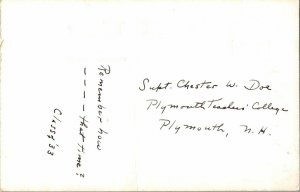 Remember how
---- that time?
Class of '33
Supt. Chester W. Doe
Plymouth Teachers' College
Plymouth, N.H.